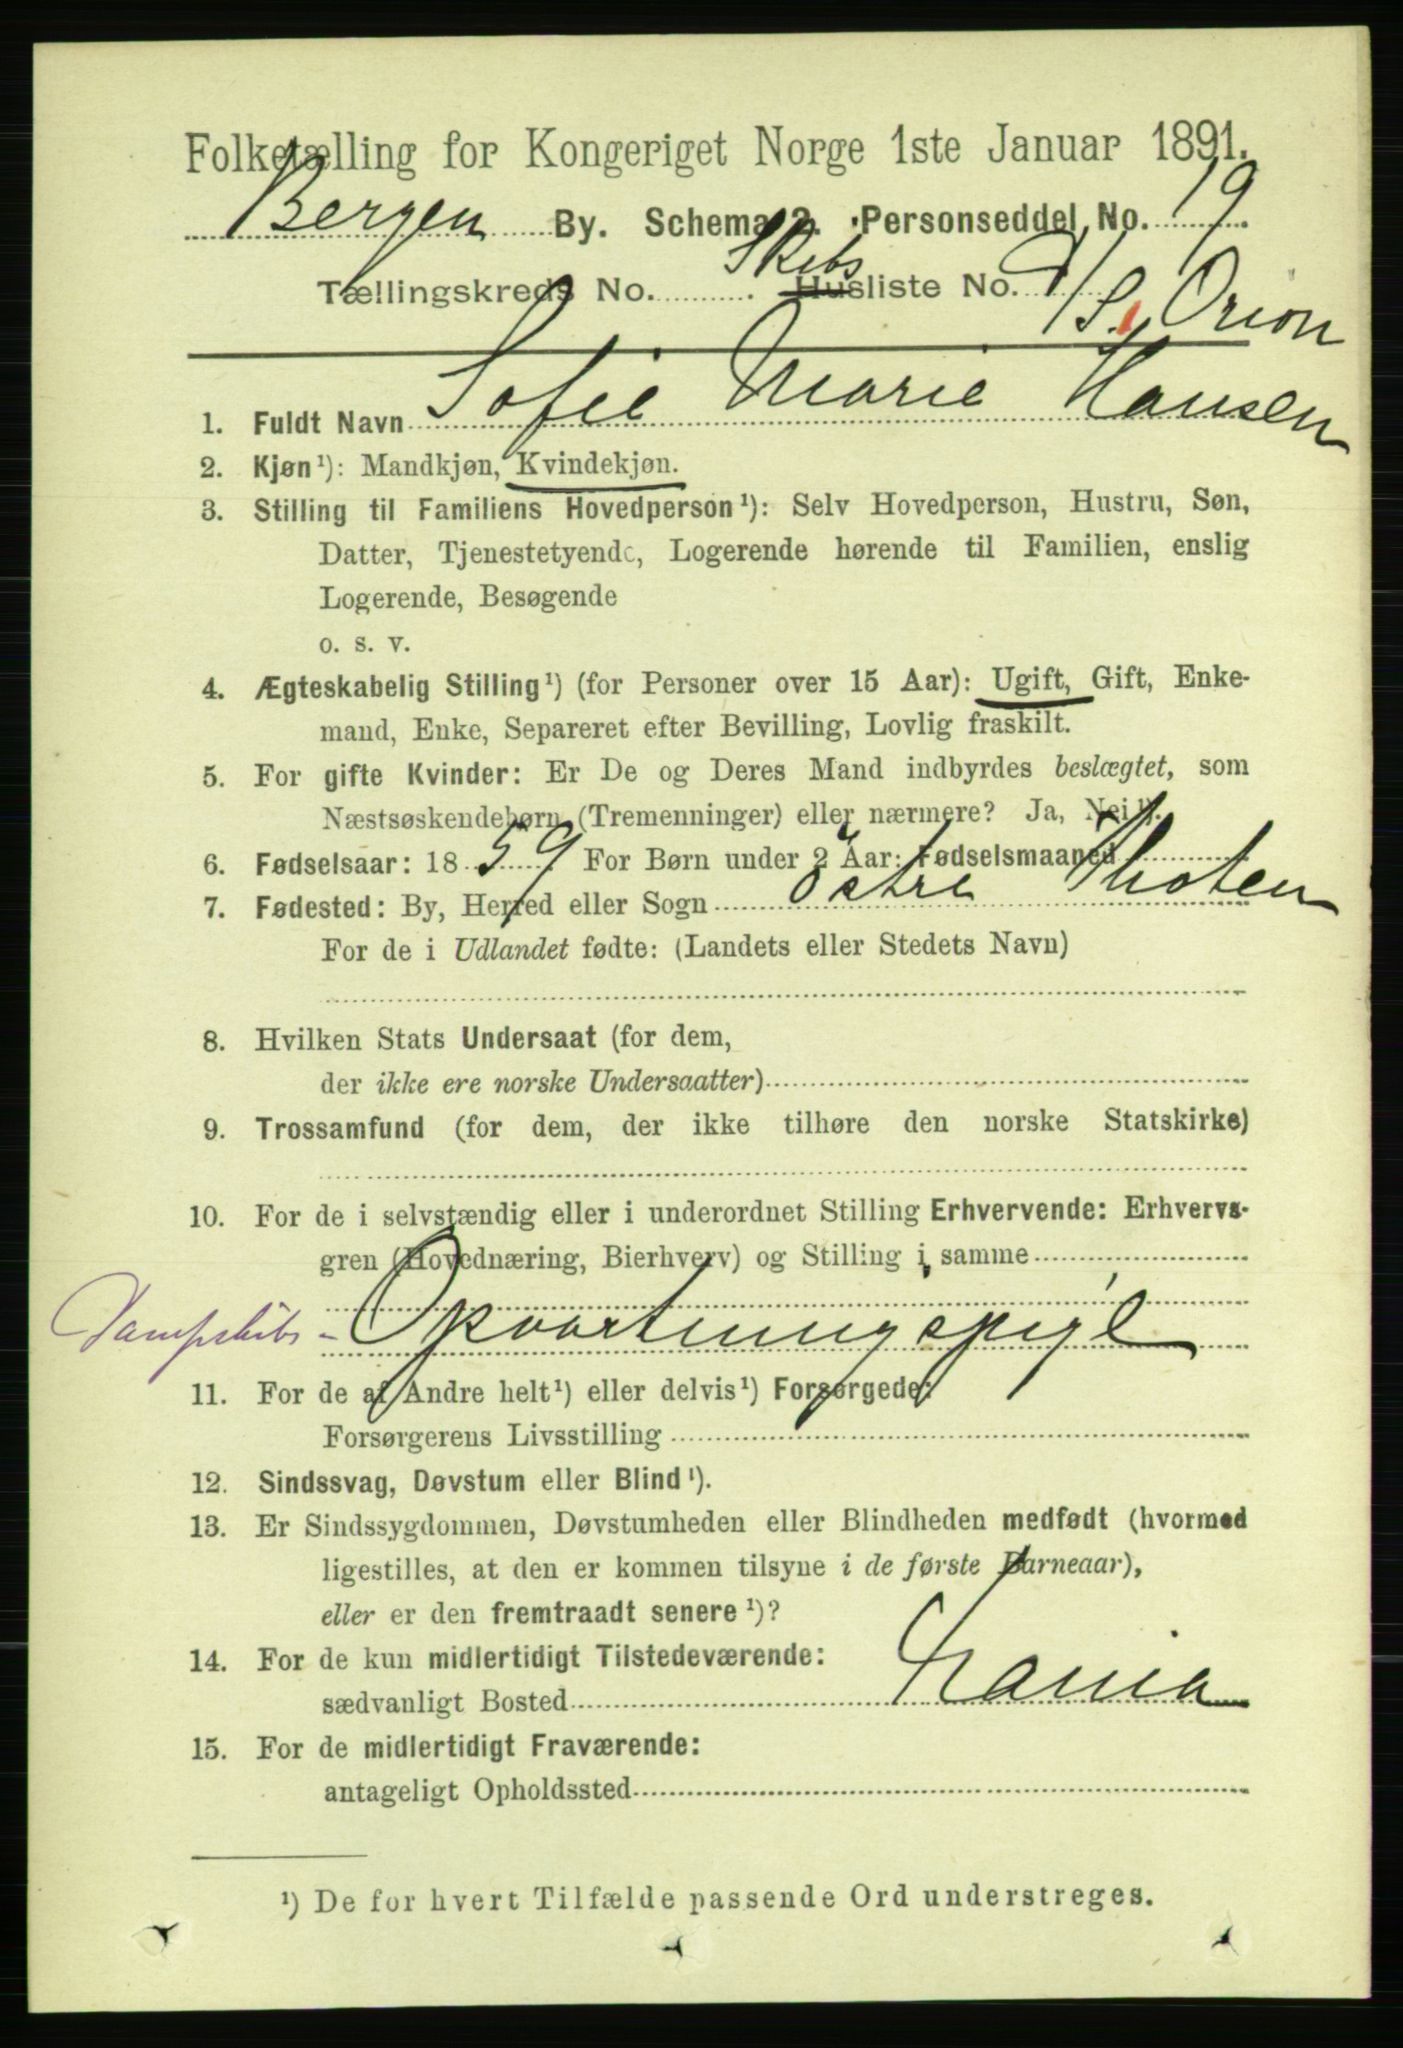 Folketælling for Kongeriget Norge 1ste Januar 1891.
Bergen By. Schema 2. Personseddel No. 19
Tællingskreds No. ........ Skibs Husliste No. D/S. Orion
1. Fuldt Navn Sofie Marie Hansen
2. Kjøn¹): Mandkjøn, Kvindekjøn.
3. Stilling til Familiens Hovedperson¹): Selv Hovedperson, Hustru, Søn,
Datter, Tjenestetyende, Logerende hørende til Familien, enslig
Logerende, Besøgende
o. s. v.
4. Ægteskabelig Stilling¹) (for Personer over 15 Aar): Ugift, Gift, Enke-
mand, Enke, Separeret efter Bevilling, Lovlig fraskilt.
5. For gifte Kvinder: Er De og Deres Mand indbyrdes beslægtet, som
Næstsøskendebørn (Tremenninger) eller nærmere? Ja, Nei¹).
6. Fødselsaar: 1859 For Børn under 2 Aar: Fødselsmaaned
7. Fødested: By, Herred eller Sogn Østre Thoten
For de i Udlandet fødte: (Landets eller Stedets Navn)
8. Hvilken Stats Undersaat (for dem,
der ikke ere norske Undersaatter)
9. Trossamfund (for dem, der ikke tilhøre den norske Statskirke)
10. For de i selvstændig eller i underordnet Stilling Erhvervende: Erhvervs-
gren (Hovednæring, Bierhverv) og Stilling i samme
Dampskibs- Opvartningspige
11. For de af Andre helt¹) eller delvis¹) Forsørgede:
Forsørgerens Livsstilling
12. Sindssvag, Døvstum eller Blind¹).
13. Er Sindssygdommen, Døvstumheden eller Blindheden medfødt (hvormed
ligestilles, at den er kommen tilsyne i de første Barneaar),
eller er den fremtraadt senere¹)?
14. For de kun midlertidigt Tilstedeværende:
sædvanligt Bosted
15. For de midlertidigt Fraværende:
antageligt Opholdssted
¹) De for hvert Tilfælde passende Ord understreges.